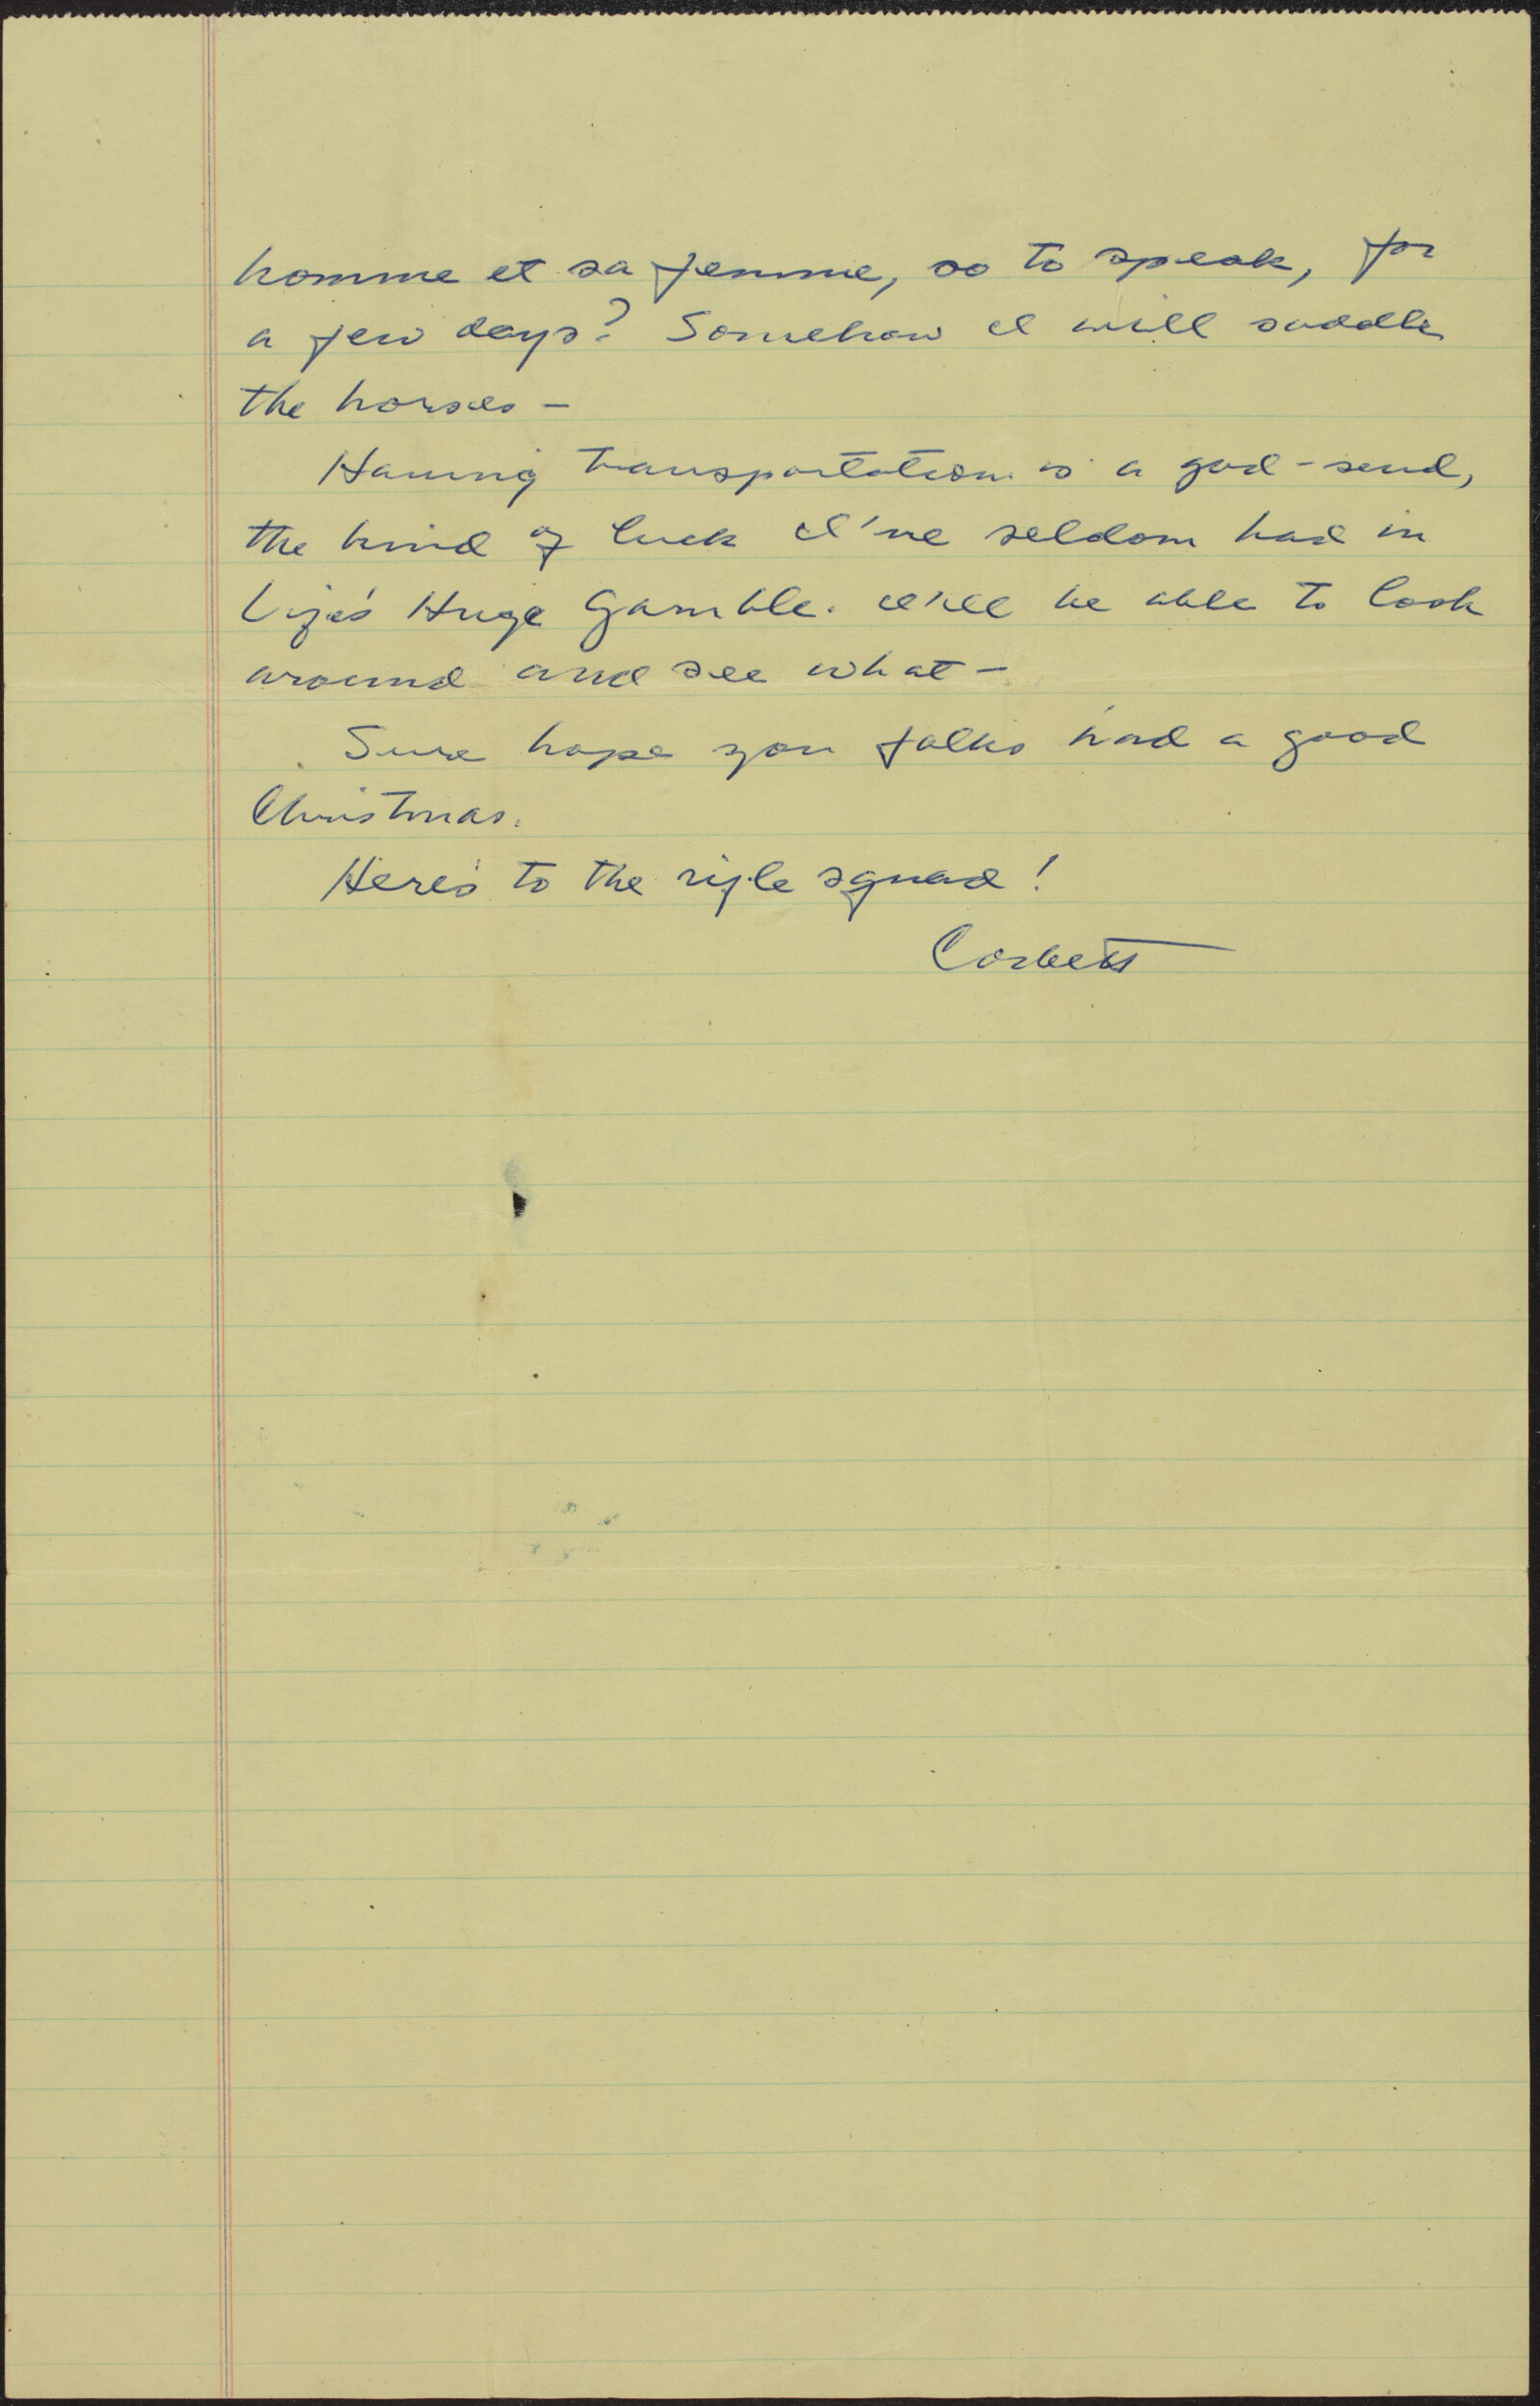 homme et sa femme, so to speak, for
a few days? Somehow I will saddle
the horses –
Having transportation is a god-send,
the kind of luck I've seldom had in
Life's Huge Gamble. I'll be able to look
around and see what –
Sure hope you folks had a good
Christmas.
Here's to the rifle squad!
Corbett